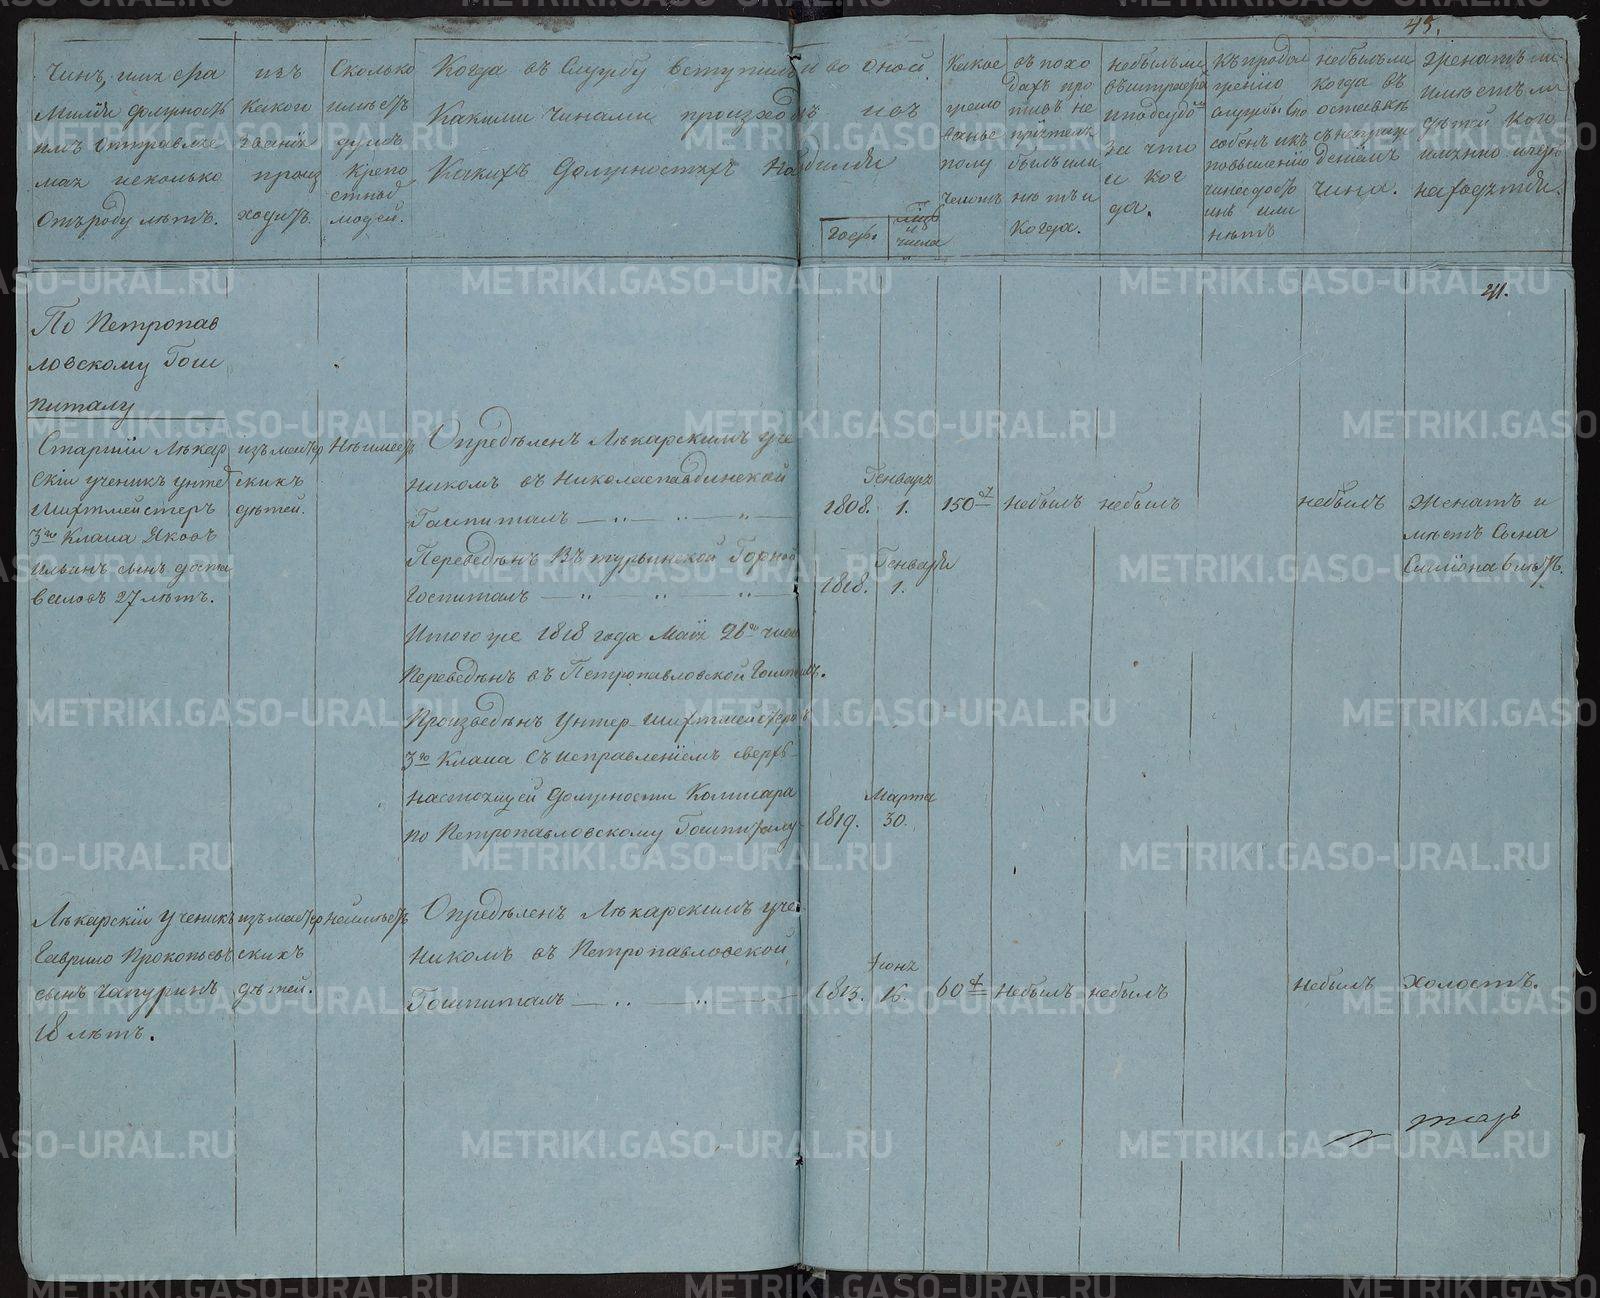 45.
Чинъ, имя фа
милія должность
имъ отправляе
мая исколько
отъ роду лѣтъ.
изъ
какого
званія
произ
ходитъ.
Сколько
имѣетъ
душъ
крепо
стныхъ
людей.
Когда въ службу вступилъ и во оной
Какими чинами происходилъ и въ
Какихъ должностяхъ находился
Годы.
числа
Какое
жало
ванье
полу
чаетъ
въ похо
дахъ про
тивъ не
пріятеля
былъ или
нѣтъ и
Когда.
небылъ ли
въ штрафа
и подсудо
за что
и ког
да.
Къ продол
женію
службы спо
собенъ и къ
повышенію
чина досто
инъ или
нѣтъ
небылъ ли
когда въ
отставкѣ
съ награж
деніемъ
чина.
Женатъ ли
имѣетъ ли
дѣтей кого
именно
41.
По Петропав
ловскому Гош
питалу
Старшій Лѣкар
скій ученикъ унте
шихтмейстеръ
3го Класа Яковъ
сынъ
27 лѣтъ.
изъ мастер
скихъ
дѣтей.
Неимеетъ
Опредѣленъ Лѣкарскимъ уче
никомъ въ Николаепавдинской
Гошпиталь — „ „ „
1808.
Генваря
1.
150
небылъ
небылъ
небылъ
Женатъ и
мѣетъ Сына
Симіона 6 лѣтъ.
Переведѣнъ Въ турьинской Горной
Госпиталь — „ „ „
1818.
Генваря
1.
Итого же 1818 года Маія 26го числа
Переведѣнъ въ Петропавловской Гошпиталь.
Произведѣнъ Унтер шихтмейстеромъ
3го Класа Съ исправленіемъ сверхъ
настоящей должности Комисара
по Петропавловскому Гошпиталу
1819.
Марта
30.
Лѣкарскій ученикъ
Гаврило Прокопьевъ
сынъ Чапуринъ
18 лѣтъ.
изъ мастер
скихъ
дѣтей.
Неимѣетъ
Опредѣленъ Лѣкарскимъ уче
никомъ въ Петропавловской
Гошпиталь — „ „
1813.
Іюня
16.
60
небылъ
небылъ
небылъ
холостъ.
METRIKI.GASO-URAL.RU